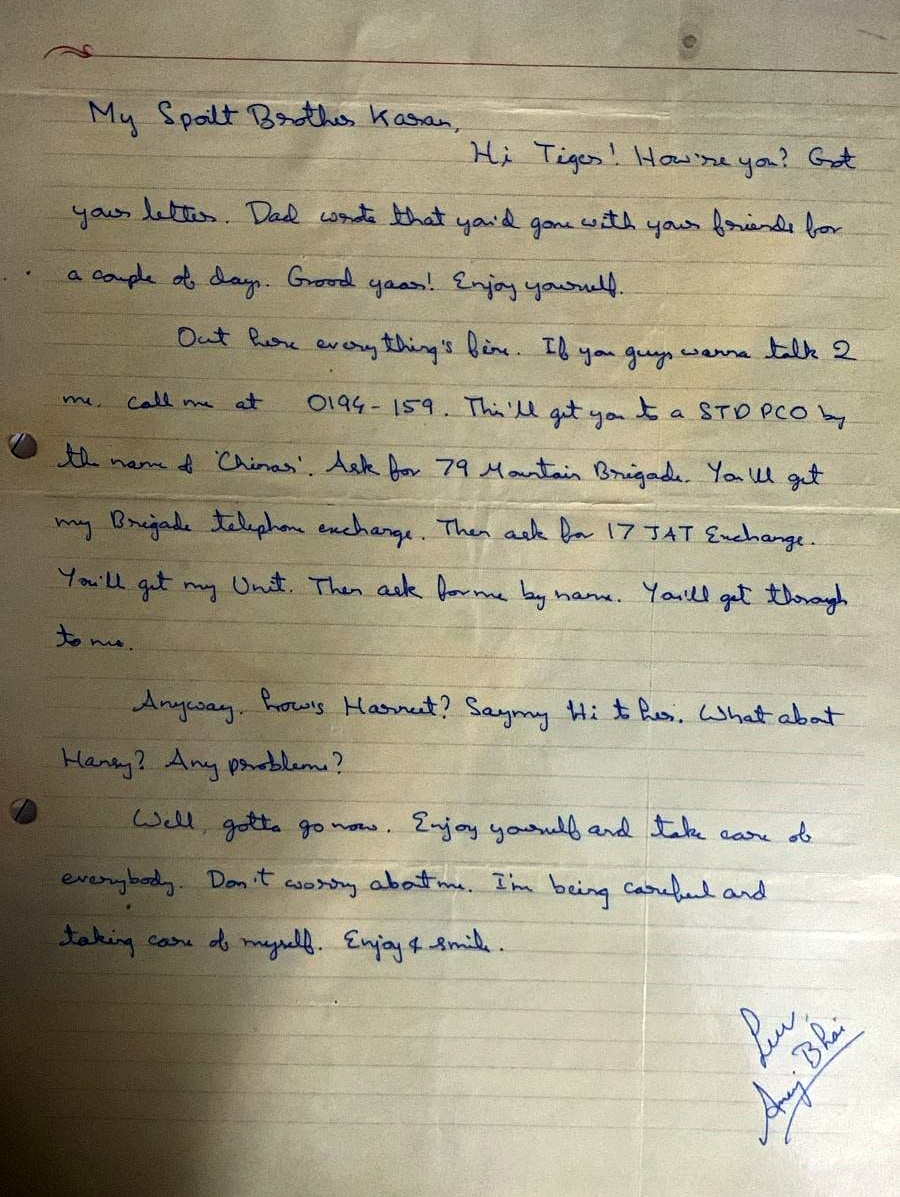 My Spoilt Brother Karan,
Hi Tiger! How're you? Got
your letter. Dad wrote that you'd gone with your friends for
a couple of days. Good yaar! Enjoy yourself.
Out here everything's fine. If you guys wanna talk 2
me, call me at 0194-159. This'll get you to a STD PCO by
the name of 'Chinar'. Ask for 79 Mountain Brigade. You'll get
my Brigade telephone exchange. Then ask for 17 JAT Exchange.
You'll get my Unit. Then ask for me by name. You'll get through
to me.
Anyway, how's Harneet? Say my Hi to her. What about
Hansy? Any problems?
Well, gotta go now. Enjoy yourself and take care of
everybody. Don't worry about me. I'm being careful and
taking care of myself. Enjoy & smile.
Luv,
Anuj Bhai